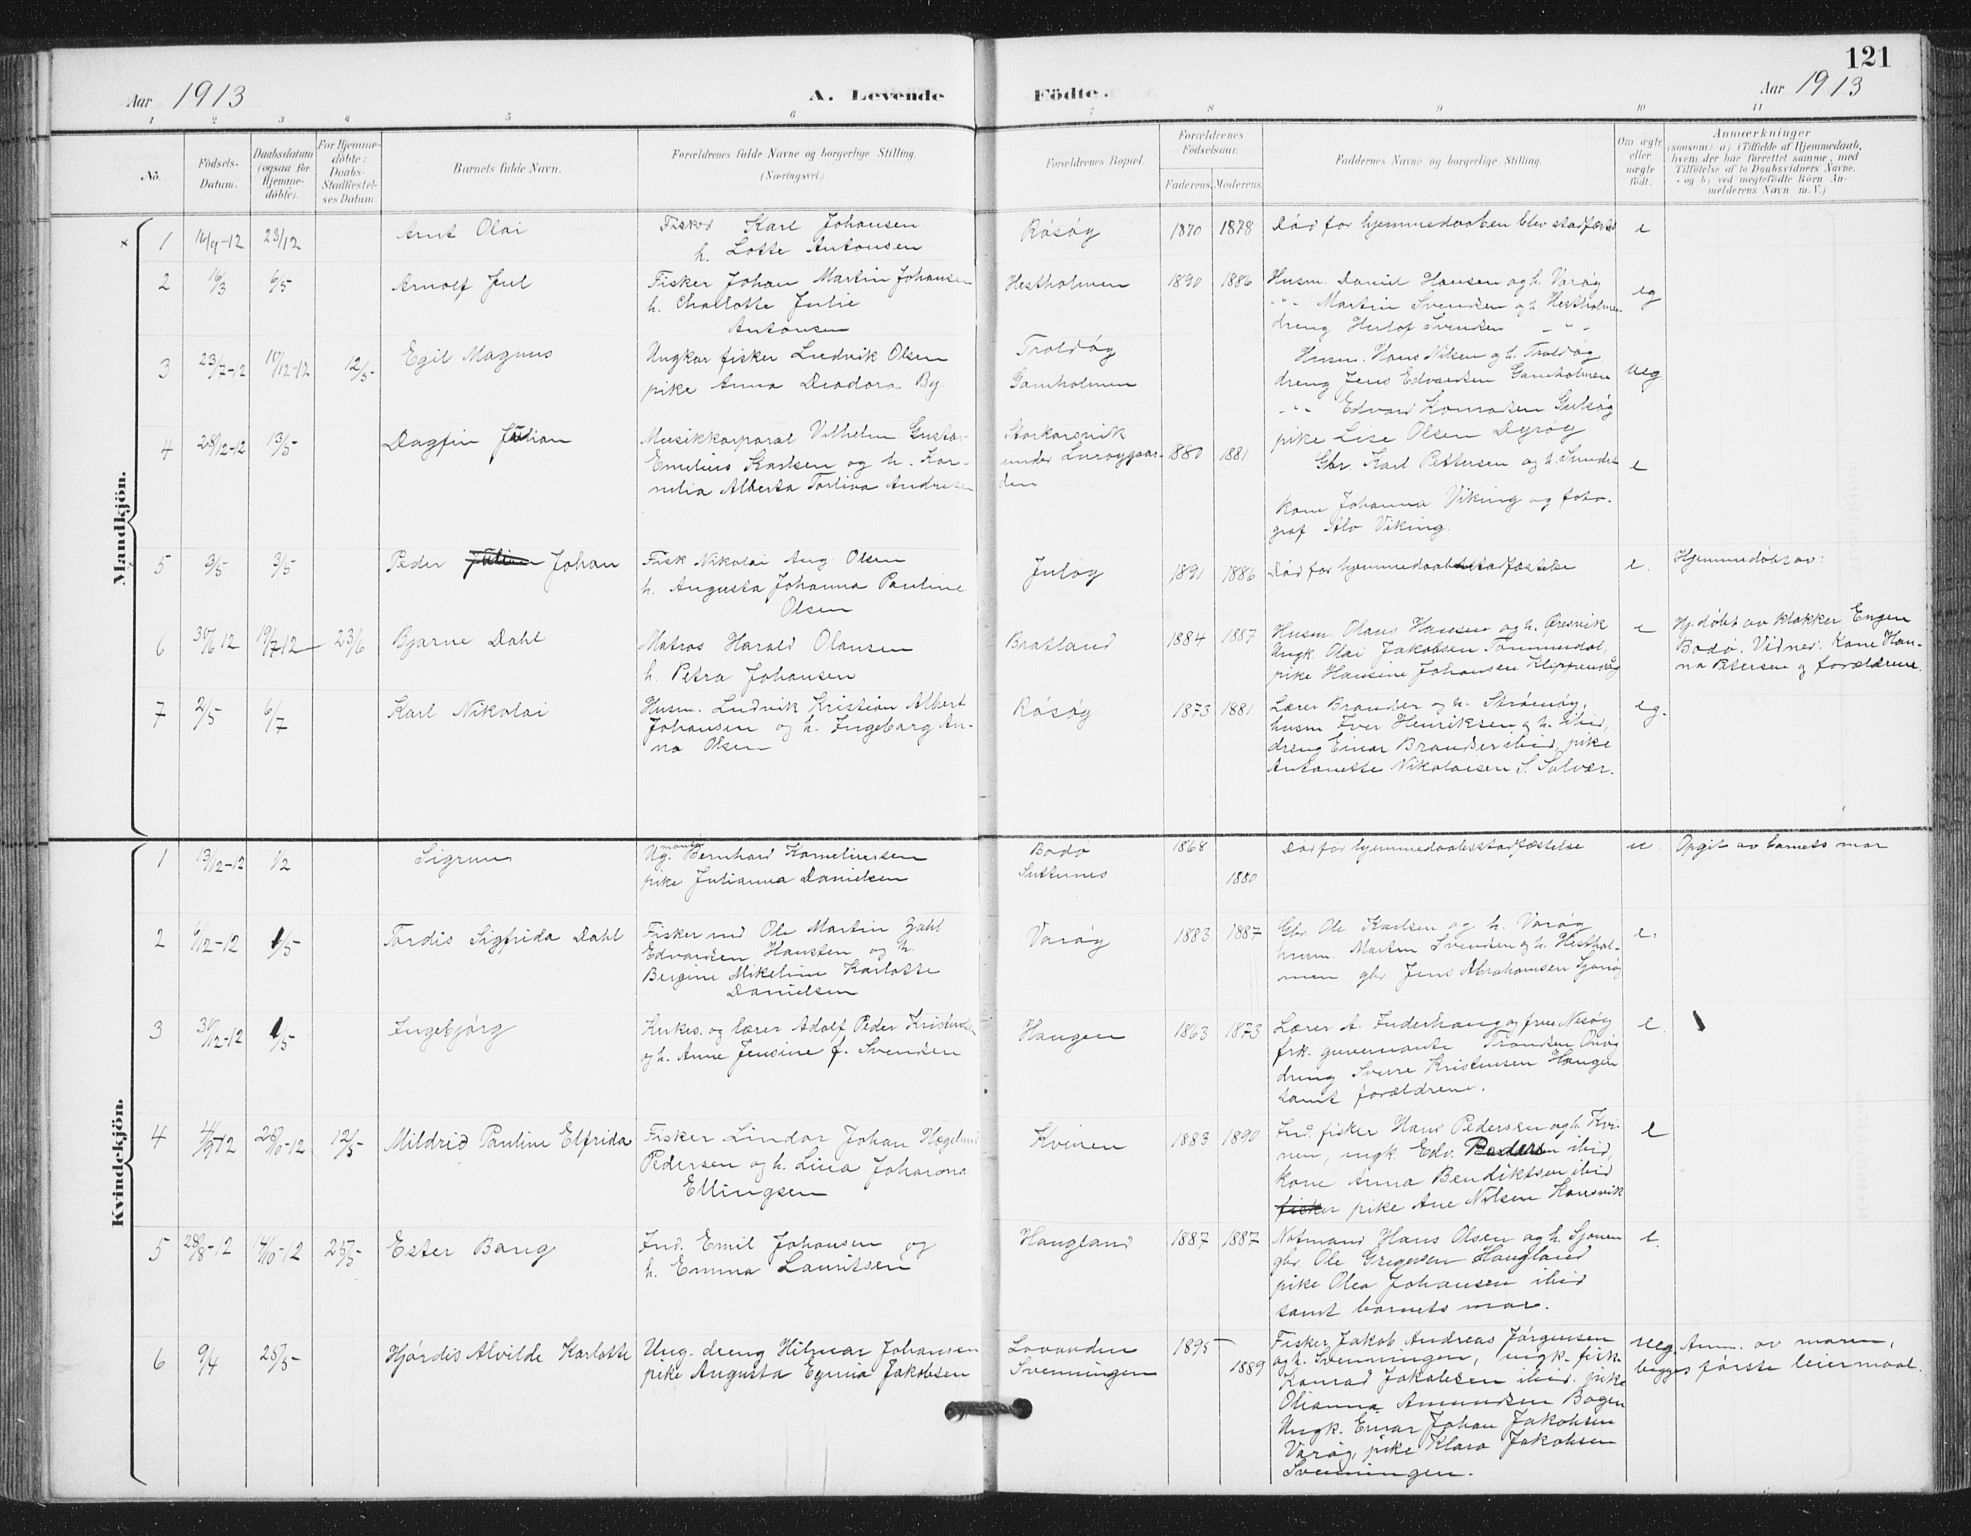 121
Aar 1913 A. Levende Födte. Aar 1913
1 2 3 4 5 6 7 8 9 10 11
No. Födsels-Datum. Daabsdatum (ogsaa för Hjemmedöbte). For Hjemmedöbte: Daabs-Stadfæstelses Datum. Barnets fulde Navn. Forældrenes fulde Navne og borgerlige Stilling. (Næringsvei.) Forældrenes Bopæl. Forældrenes Födselsaar. Faderens. Moderens. Faddernes Navne og borgerlige Stilling. Om ægte eller uægte födt. Anmærkninger
(saasom: a) i Tilfælde af Hjemmedaab,
hvem der har forrettet samme, med
Tilföielse af to Daabsvidners Navne,
og b) ved uægtefödte Börn Anmelderens Navn m. V.)
Mandkjön.
1 14/9-12 23/12 Arnt Olai
Fisker Karl Johansen
h. Lotte Antonsen
Råsøy 1870 1878 Död før hjemmedaaben blev stadfæstet e
2 16/3 6/5 Arnolf Jul
Fisker Johan Martin Johansen
h. Charlotte Julie
Antonsen
Hestholmen 1890 1886
Husm. Daniel Hansen og h. Varøy
-"- Martin Svendsen og h. Hestholmen
dreng Herlof Svendsen -"-
eg
3 23/7-12 10/12-12 12/5 Egil Magnus
Ungkar fisker Ludvik Olsen
pike Anna Deodora By
Troldøy
Gamholmen
Husm. Hans Nilsen og h. Troldøy
dreng Jens Edvardsen Gamholmen
-"- Edvard Konradsen Gulsøy
pike Lise Olsen Dyrøy
ueg
4 28/12-12 13/5 Dagfin Julian
Musikkorporal Vilhelm Gustav
Emelius Karlsen og h. Kornelia Alberta Torlina Andresen
Storkorsvik
under Lurøygaarden
1880 1881
Gbr. Karl Pettersen og h. Sundet
kone Johanna Viking og fotograf Alv Viking.
e
5 3/5 3/5 Peder Johan
Fisk Nikolai Aug. Olsen
h. Augusta Johanna Pauline
Olsen
Juløy 1891 1886 Död før hjemmedaabsstadfæstelse e. Hjemmedøbt av:
6 30/6 12 19/7 12 23/6 Bjarne Dahl
Matros Harald Olausen
h. Petra Johansen
Bratland 1884 1887
Husm. Olaus Hansen og h. Øresvik
Ungk. Olai Jakobsen Tommedal,
pike Hansine Johansen Klippenvåg
e
Hj. døbt av klokker Engen
Bodø. Vidner: Kone Hanna Petersen og forældrene.
7 2/5 6/7 Karl Nikolai
Husm. Ludvik Kristian Albert
Johansen og h. Ingeborg Anna Olsen
Råsøy 1873 1881
Lærer Brandser og h. Strømøy,
husm Iver Henriksen og h. ibid,
dreng Einar Brandser ibid, pike
Antonette Nikolaisen S. Solvær.
eg.
Kvindekjön.
1 13/12-12 1/2 Sigrun
Ug. montør Bernhard Korneliussen
pike Julianna Danielsen
Bodø
Sutternes
1868
1880
Död før hjemmedaabsstadfæstelse u Opgit av barnets mor
2 1/12-12 1/5 Tordis Sigfrida Dahl
Fisker ind. Ole Martin Zahl
Edvardsen Hansten og h.
Bergine Mikeline Karlotte
Danielsen
Varøy 1883 1887
Gbr. Ole Karlsen og h. Varøy
husm. Martin Svendsen og h. Hestholmen gbr Jens Abrahamsen
e.
3 30/12-12 1/5 Ingebjørg
Kirkes. og lærer Adolf Peder Kristensen
og h. Anne Jensine f. Svendsen
Haugen 1863 1873
Lærer A. Inderhaug og frue Nesøy
frk. guvernante Trondsen Onøy
dreng Sverre Kristensen Haugen
samt forældrene.
e
4 4/9 12 20/10-12 12/5 Mildrid Pauline Elfrida
Fisker Lindor Johan Hægelund
Pedersen og h. Lina Johanna
Ellingsen
Kvinen 1883 1890
Ind. fisker Hans Pedersen og h. Kvinen, ungk. Edv. Pedersen ibid,
kone Anna Bendiktsen ibid
fisker pike Ane Nilsen Konsvik
e
5 28/8-12 14/10-12 25/5 Ester Bang
Ind. Emil Johansen og
h. Emma Lauritsen
Haugland 1887 1887
Notmand Hans Olsen og h. Sjonen
gbr. Ole Gregersen Haugland
pike Olea Johansen ibid
samt barnets mor.
e.
6 9/4 25/5 Hjørdis Alvilde Karlotte
Ung. dreng Hilmar Johansen
pike Augusta Egina Jakobsen
Lovunden
Svenningen
1895
1889
Fisker Jakob Andreas Jørgensen
og h. Svenningen, ungk. fisk.
Konrad Jakobsen ibid. pike
Olianna Amundsen Bogen
Ungk. Einar Johan Jakobsen
Varøy, pike Klara Jakobsen
Svenningen.
ueg. Anm. av moren,
begges første leiermaal.